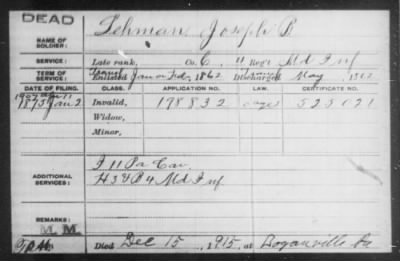 DEAD
Lehman, Joseph B
NAME OF SOLDIER:
SERVICE: Late rank, Co. C, 4 Reg't Md Inf
TERM OF SERVICE: Enlisted Jan or Feb, 1862 Discharged May, 1862
DATE OF FILING. CLASS. APPLICATION NO. LAW. CERTIFICATE NO.
1875 Jan 2 Invalid, 198832 525021
Widow,
Minor,
ADDITIONAL SERVICES:
F 11 Pa Cav
H 3 & B 4 Md Inf
REMARKS:
M. M.
Died Dec 15, 1915, at Boganville Pa